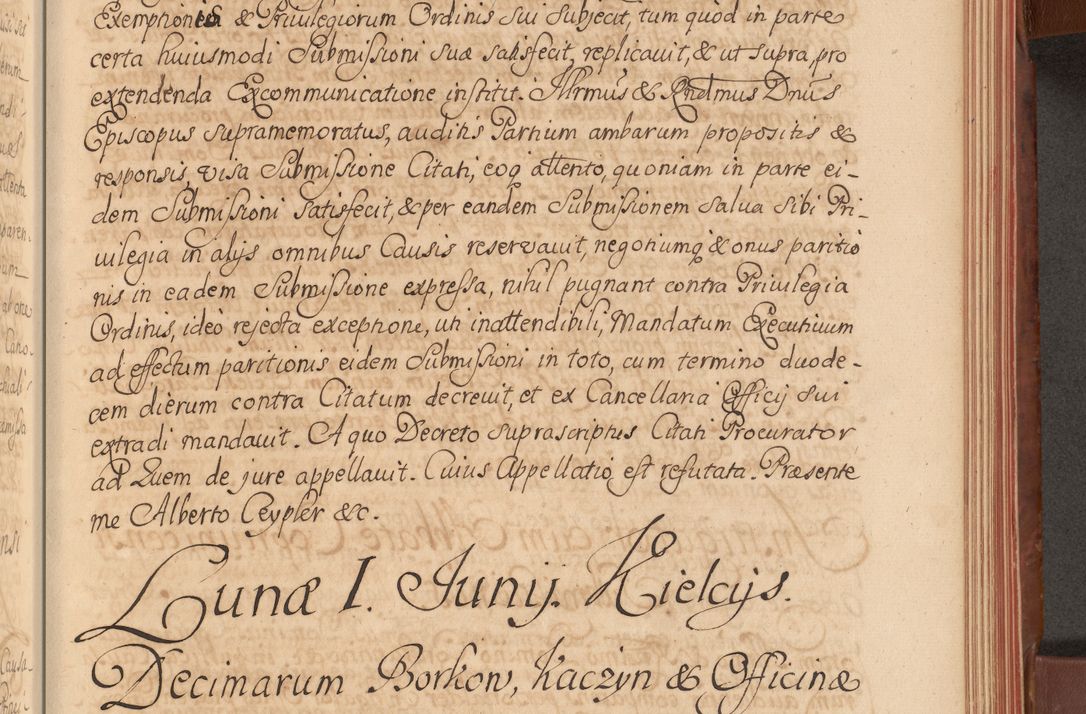 Exemptionis & Privilegiorum Ordinis sui subjecit, tum quod in parte
certa huiusmodi Submissioni suæ satisfecit, replicavit, & ut supra, pro
extendenda Excommunicatione institit. Illrmūs & Rndmus Dnūs
Episcopus supramemoratus, auditis Partium ambarum propositis &
responsis, visa Submissione Citati, eoq̄ attento, quoniam in parte ei-
dem Submissioni satisfecit, & per eandem Submissionem salva sibi Pri-
vilegia in alijs omnibus Causis reservavit, negotiumq̄ & onus paritio
nis in eadem Submissione expressa, nihil pugnant contra Privilegia
Ordinis, ideò rejecta exceptione, uti inattendibili, Mandatum Executivum
ad effectum paritionis eidem Submissioni in toto, cum termino duode-
cem dierum contra Citatum decrevit, et ex Cancellaria Officij sui
extradi mandavit. A quo Decreto suprascriptus Citati Procurator
ad Quem de jure appellavit. Cuius Appellatio est refutata. Præsente
me Alberto Ceypler &c.
Lunæ I. Junij. Kielcijs.
Decimarum Borkow, Kaczyn & Officinæ